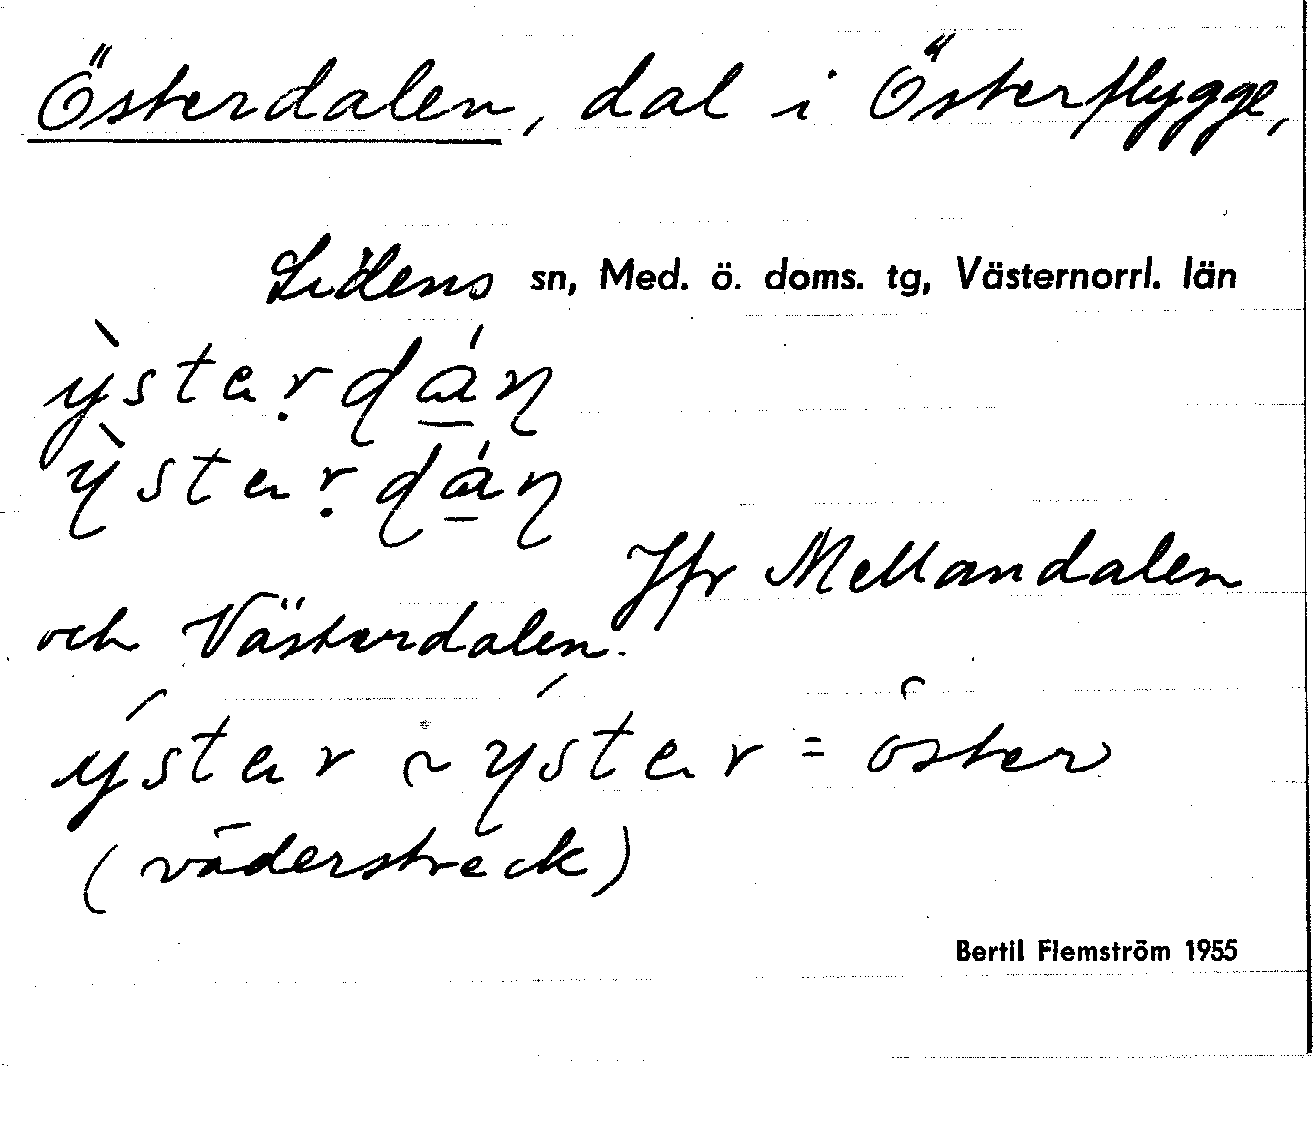 Österdalen, dal i Österflygge,
Lidens sn, Med. ö. doms. tg, Västernorrl. län
ỳstaṛdá̱ŋ
ỳstaṛdá̱ŋ
Jfr Mellandalen
och Västerdalen.
ýstar ~ ýstar = öster
(väderstreck)
Bertil Flemström 1955